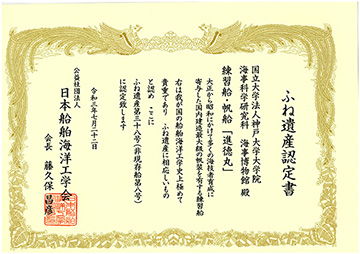 ふね遺産認定書
国立大学法人神戸大学大学院
海事科学研究科 海事博物館 殿
練習船・帆船「進徳丸」
大正から昭和にかけて多くの海技者育成に
寄与した国内建造最大級の帆装を有する練習船
右は我が国の船舶海洋工学史上極めて
貴重であり ふね遺産に相応しいもの
と認め ここに
ふね遺産第三十八号(非現存船第八号)
に認定致します
令和三年七月二十二日
公益社団法人
日本船舶海洋工学会
会長 藤久保 昌彦